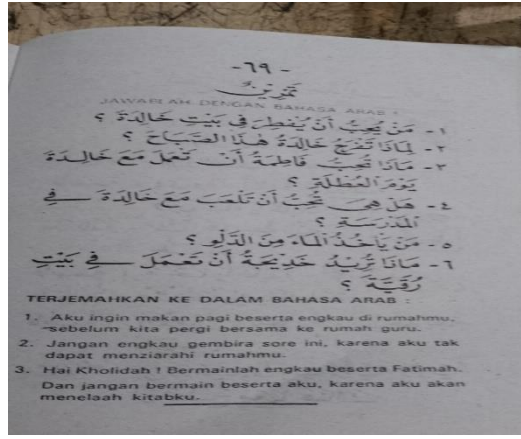 - ٦٩ -
تَمْرِيْنٌ
JAWABLAH DENGAN BAHASA ARAB :
١ - مَنْ يُحِبُّ أَنْ يُفْطِرَ فِي بَيْتِ خَالِدَةَ ؟
٢ - لِمَاذَا تَفْرَحُ خَالِدَةُ هٰذَا الصَّبَاحَ ؟
٣ - مَاذَا تُحِبُّ فَاطِمَةُ أَنْ تَعْمَلَ مَعَ خَالِدَةَ
يَوْمَ الْعُطْلَةِ ؟
٤ - هَلْ هِيَ تُحِبُّ أَنْ تَلْعَبَ مَعَ خَالِدَةَ فِي
الْمَدْرَسَةِ ؟
٥ - مَنْ يَأْخُذُ الْمَاءَ مِنَ الدَّلْوِ ؟
٦ - مَاذَا تُرِيْدُ خَدِيْجَةُ أَنْ تَعْمَلَ فِي بَيْتِ
رُقَيَّةَ ؟
TERJEMAHKAN KE DALAM BAHASA ARAB :
1. Aku ingin makan pagi beserta engkau di rumahmu,
sebelum kita pergi bersama ke rumah guru.
2. Jangan engkau gembira sore ini, karena aku tak
dapat menziarahi rumahmu.
3. Hai Kholidah ! Bermainlah engkau beserta Fatimah.
Dan jangan bermain beserta aku, karena aku akan
menelaah kitabku.